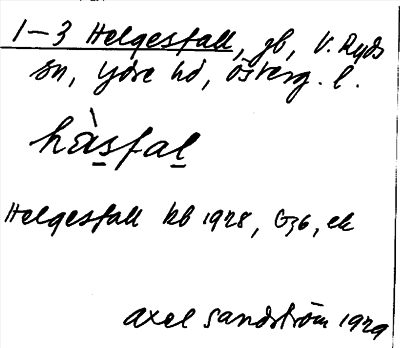 1-3 Helgesfall, gb, V. Ryds
sn, Ydre hd, Österg. l.
hàsfal
Helgesfall kb 1928, G36, ek
Axel Sandström 1929